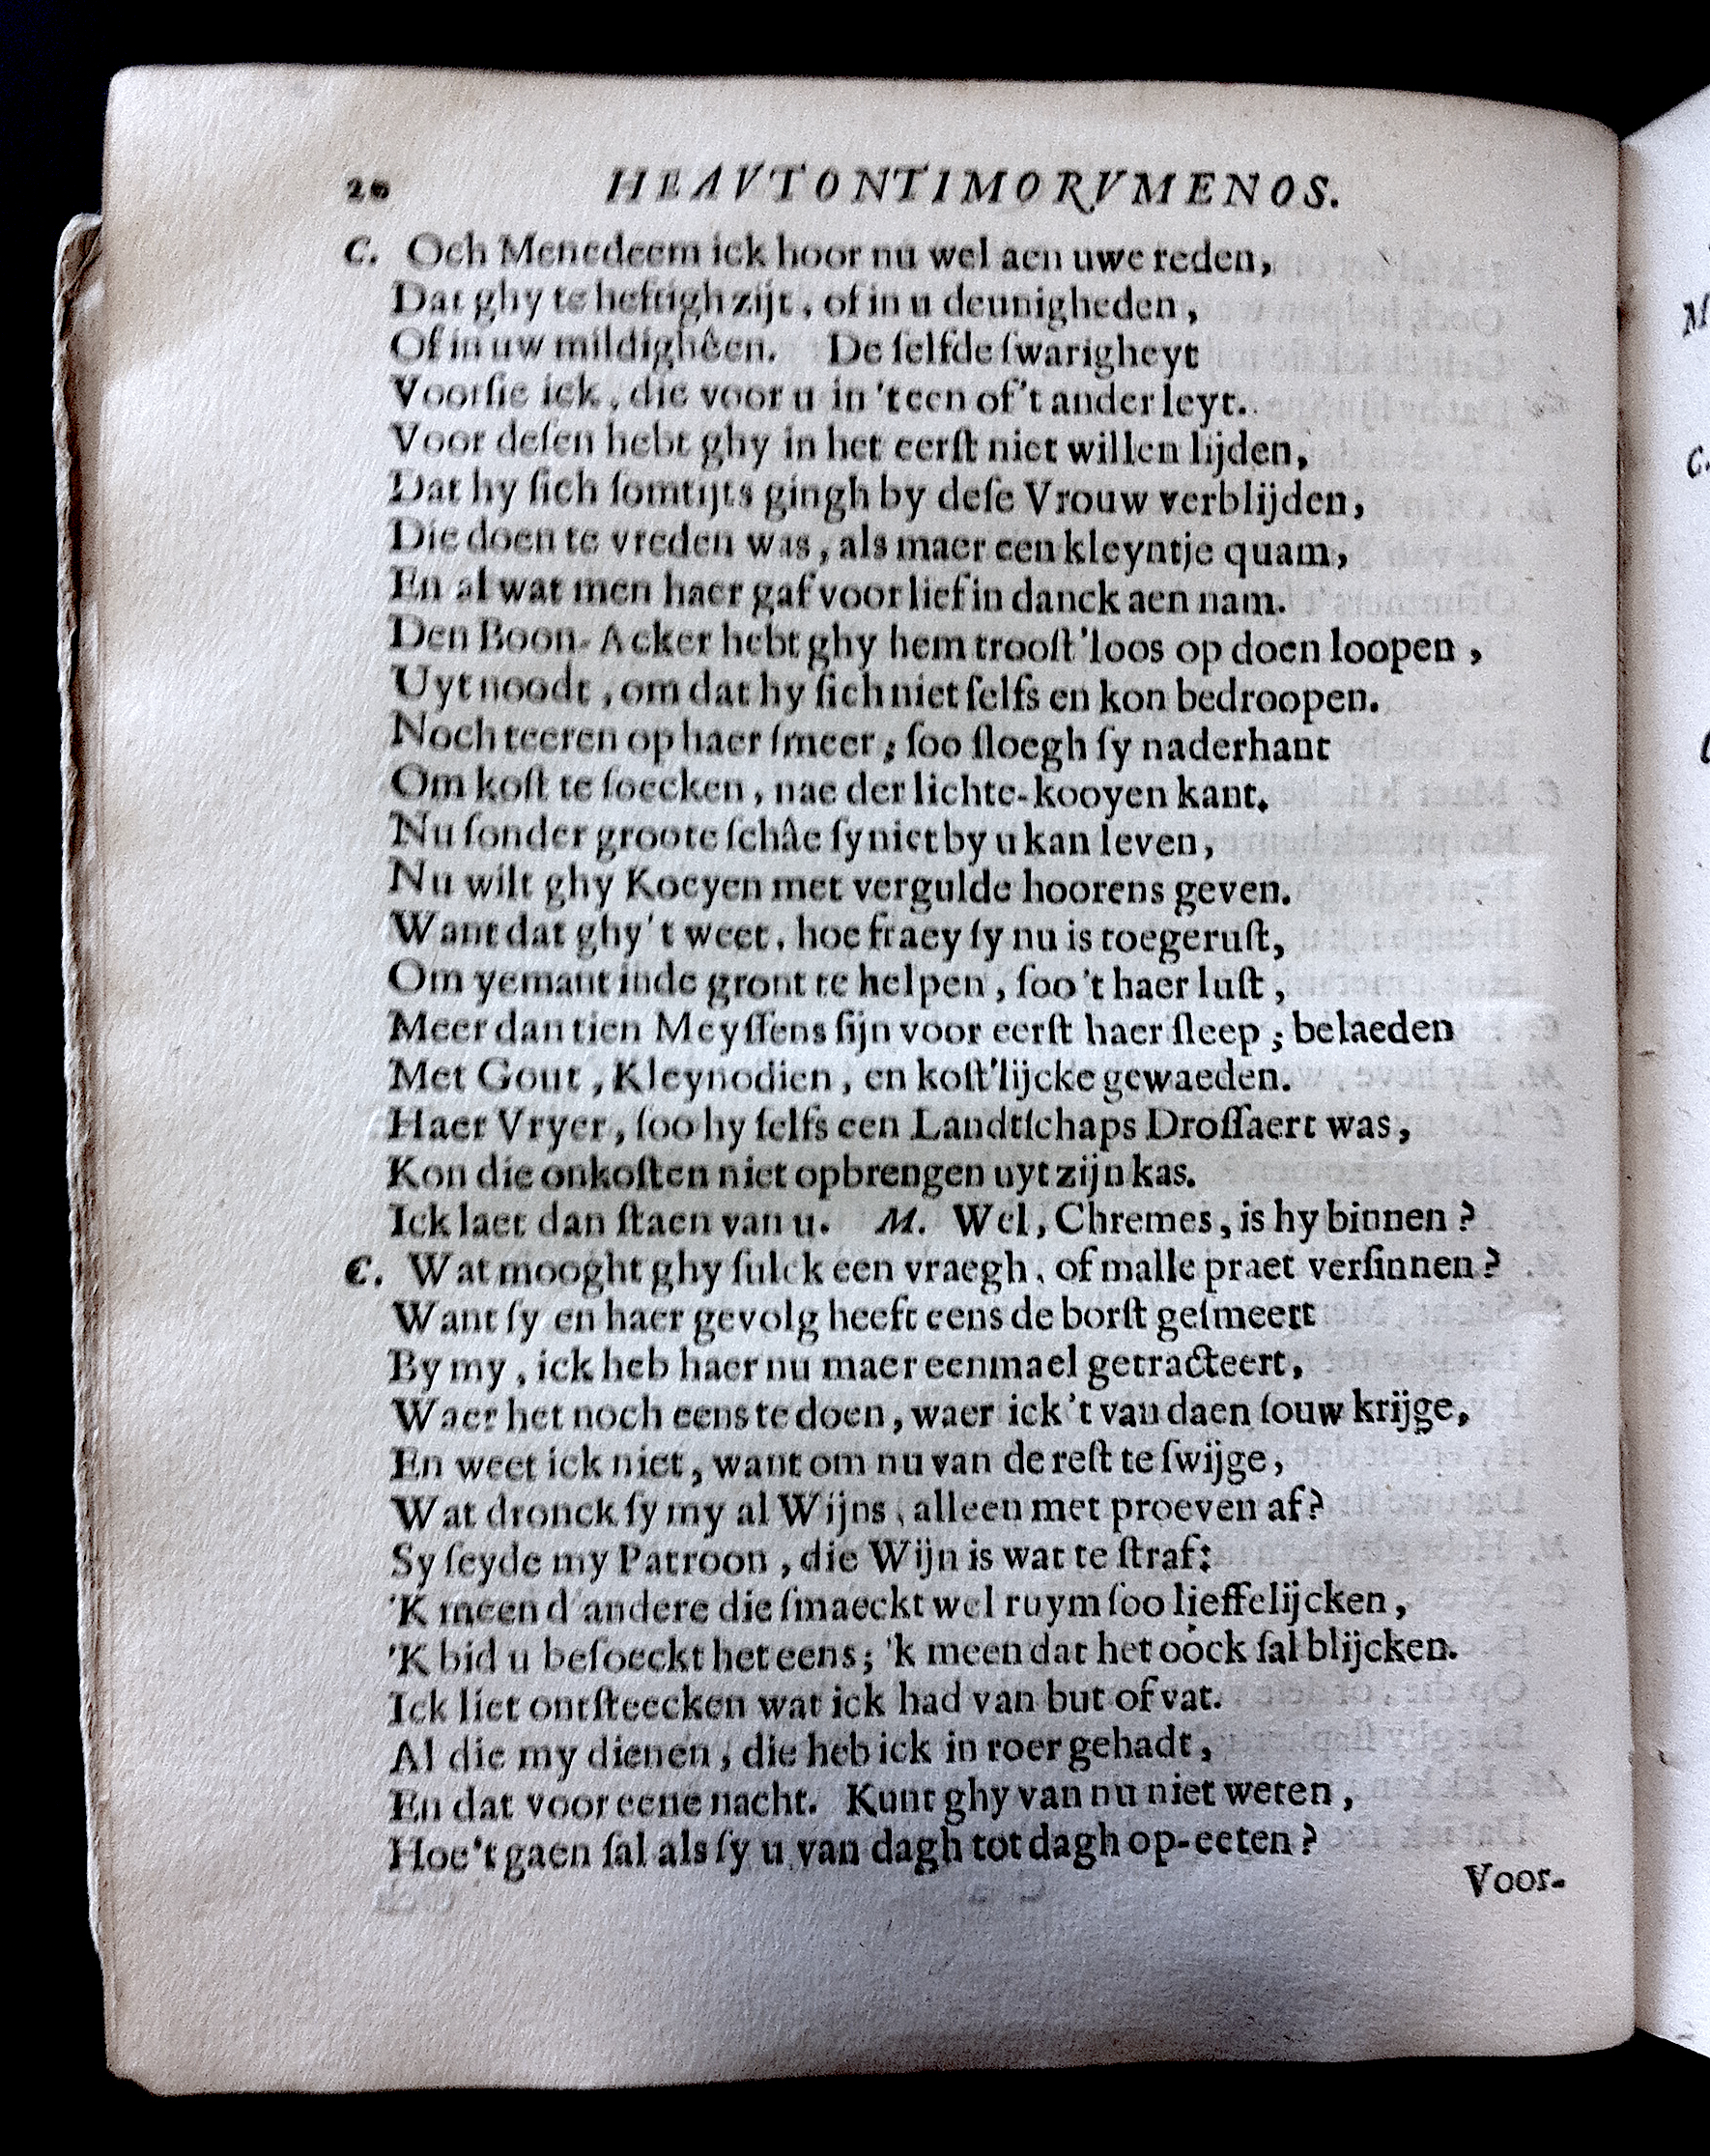 20 HEAVTONTIMORVMENOS.
C. Och Menedeem ick hoor nu wel aen uwe reden,
Dat ghy te heftigh zijt, of in u deunigheden,
Of in uw mildighêen. De ſelfde ſwarigheyt
Voorſie ick, die voor u in 't een of 't ander leyt.
Voor deſen hebt ghy in het eerſt niet willen lijden,
Dat hy ſich ſomtijts gingh by deſe Vrouw verblijden,
Die doen te vreden was, als maer een kleyntje quam,
En al wat men haer gaf voor lief in danck aen nam.
Den Boon-Acker hebt ghy hem trooſt'loos op doen loopen,
Uyt noodt, om dat hy ſich niet ſelfs en kon bedroopen.
Noch teeren op haer ſmeer; ſoo ſloegh ſy naderhant
Om koſt te ſoecken, nae der lichte-kooyen kant.
Nu ſonder groote ſchâe ſy niet by u kan leven,
Nu wilt ghy Koeyen met vergulde hoorens geven.
Want dat ghy 't weet, hoe fraey ſy nu is toegeruſt,
Om yemant inde gront te helpen, ſoo 't haer luſt,
Meer dan tien Meyſſens ſijn voor eerſt haer ſleep; belaeden
Met Gout, Kleynodien, en koſt'lijcke gewaeden.
Haer Vryer, ſoo hy ſelfs een Landtſchaps Droſſaert was,
Kon die onkoſten niet opbrengen uyt zijn kas.
Ick laet dan ſtaen van u. M. Wel, Chremes, is hy binnen?
C. Wat mooght ghy ſulck een vraegh, of malle praet verſinnen?
Want ſy en haer gevolg heeft eens de borſt geſmeert
By my, ick heb haer nu maer eenmael getracteert,
Waer het noch eens te doen, waer ick 't van daen ſouw krijge,
En weet ick niet, want om nu van de reſt te ſwijge,
Wat dronck ſy my al Wijns, alleen met proeven af?
Sy ſeyde my Patroon, die Wijn is wat te ſtraf:
'K meen d'andere die ſmaeckt wel ruym ſoo lieffelijcken,
'K bid u beſoeckt het eens; 'k meen dat het oock ſal blijcken.
Ick liet ontſteecken wat ick had van but of vat.
Al die my dienen, die heb ick in roer gehadt,
En dat voor eene nacht. Kunt ghy van nu niet weten,
Hoe't gaen ſal als ſy u van dagh tot dagh op-eeten?
Voor-